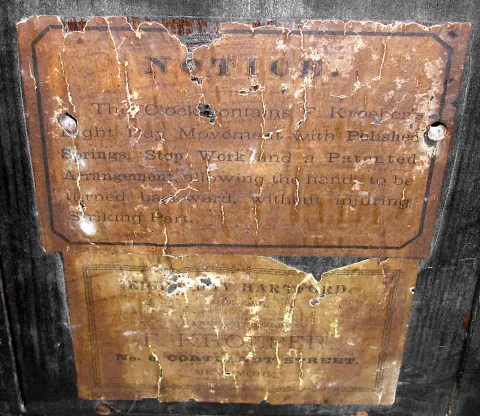 NOTICE.
This Clock contains F. Kroeber's
Eight Day Movement with Polished
Springs, Stop Work and a Patented
Arrangement, allowing the hands to be
turned backward, without injuring
Striking Part.
EIGHT DAY HARTFORD
F. KROEBER
No. 8 CORTLANDT STREET,
NEW YORK